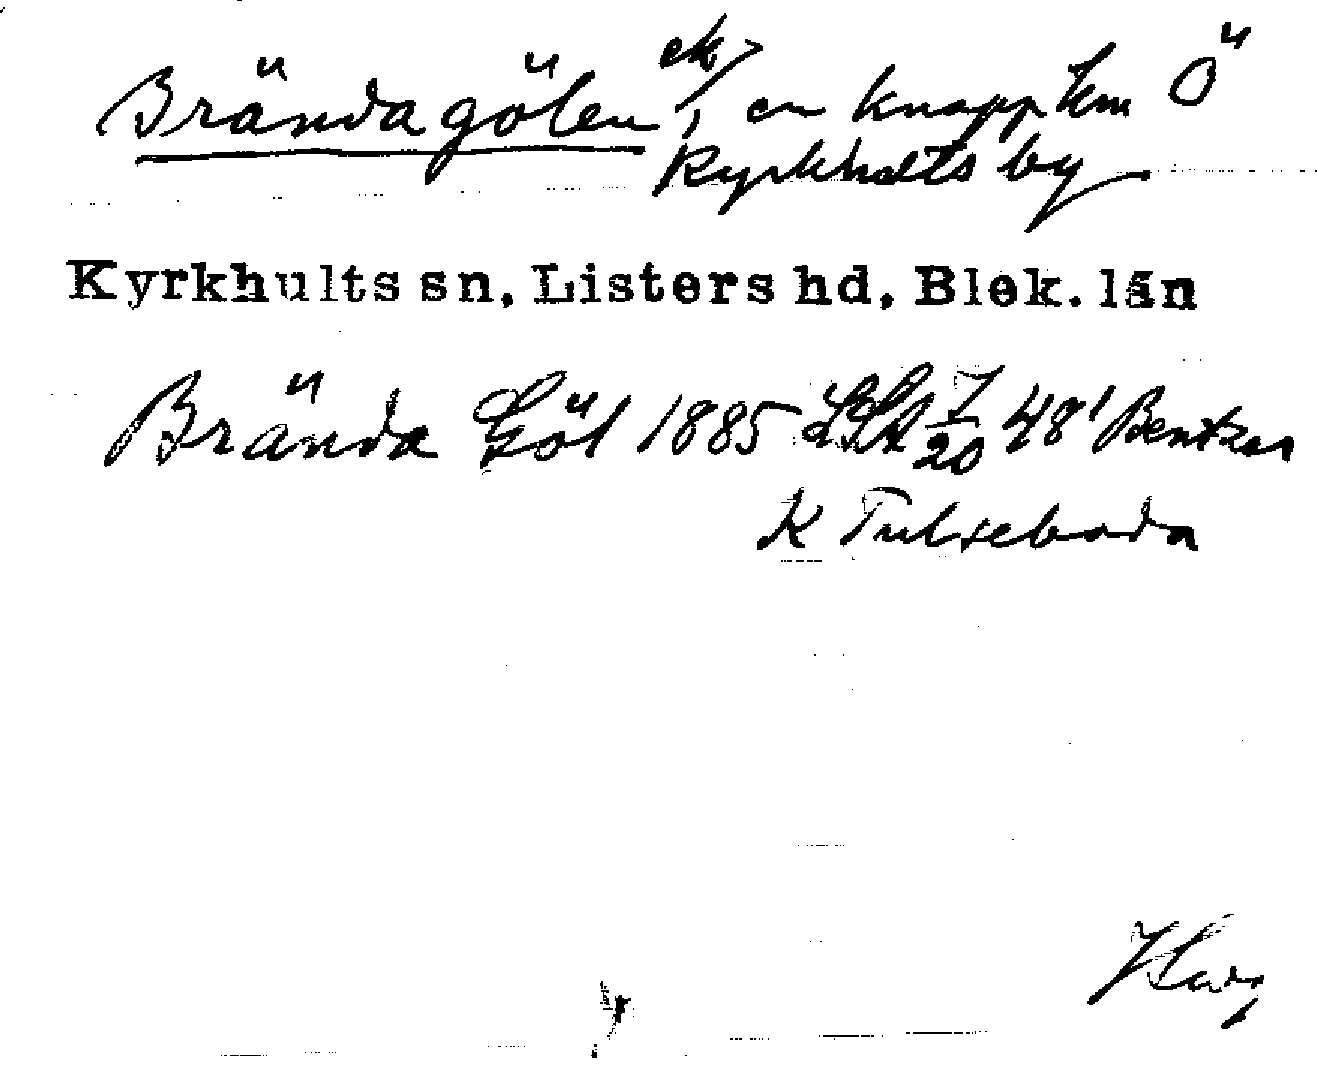 Brändagölen ek, en knapp km Ö
Kyrkhults by
Kyrkhults sn, Listers hd, Blek. län
Brända Göl 1885 LSA 7/20 48' Bentzen
K Tulseboda